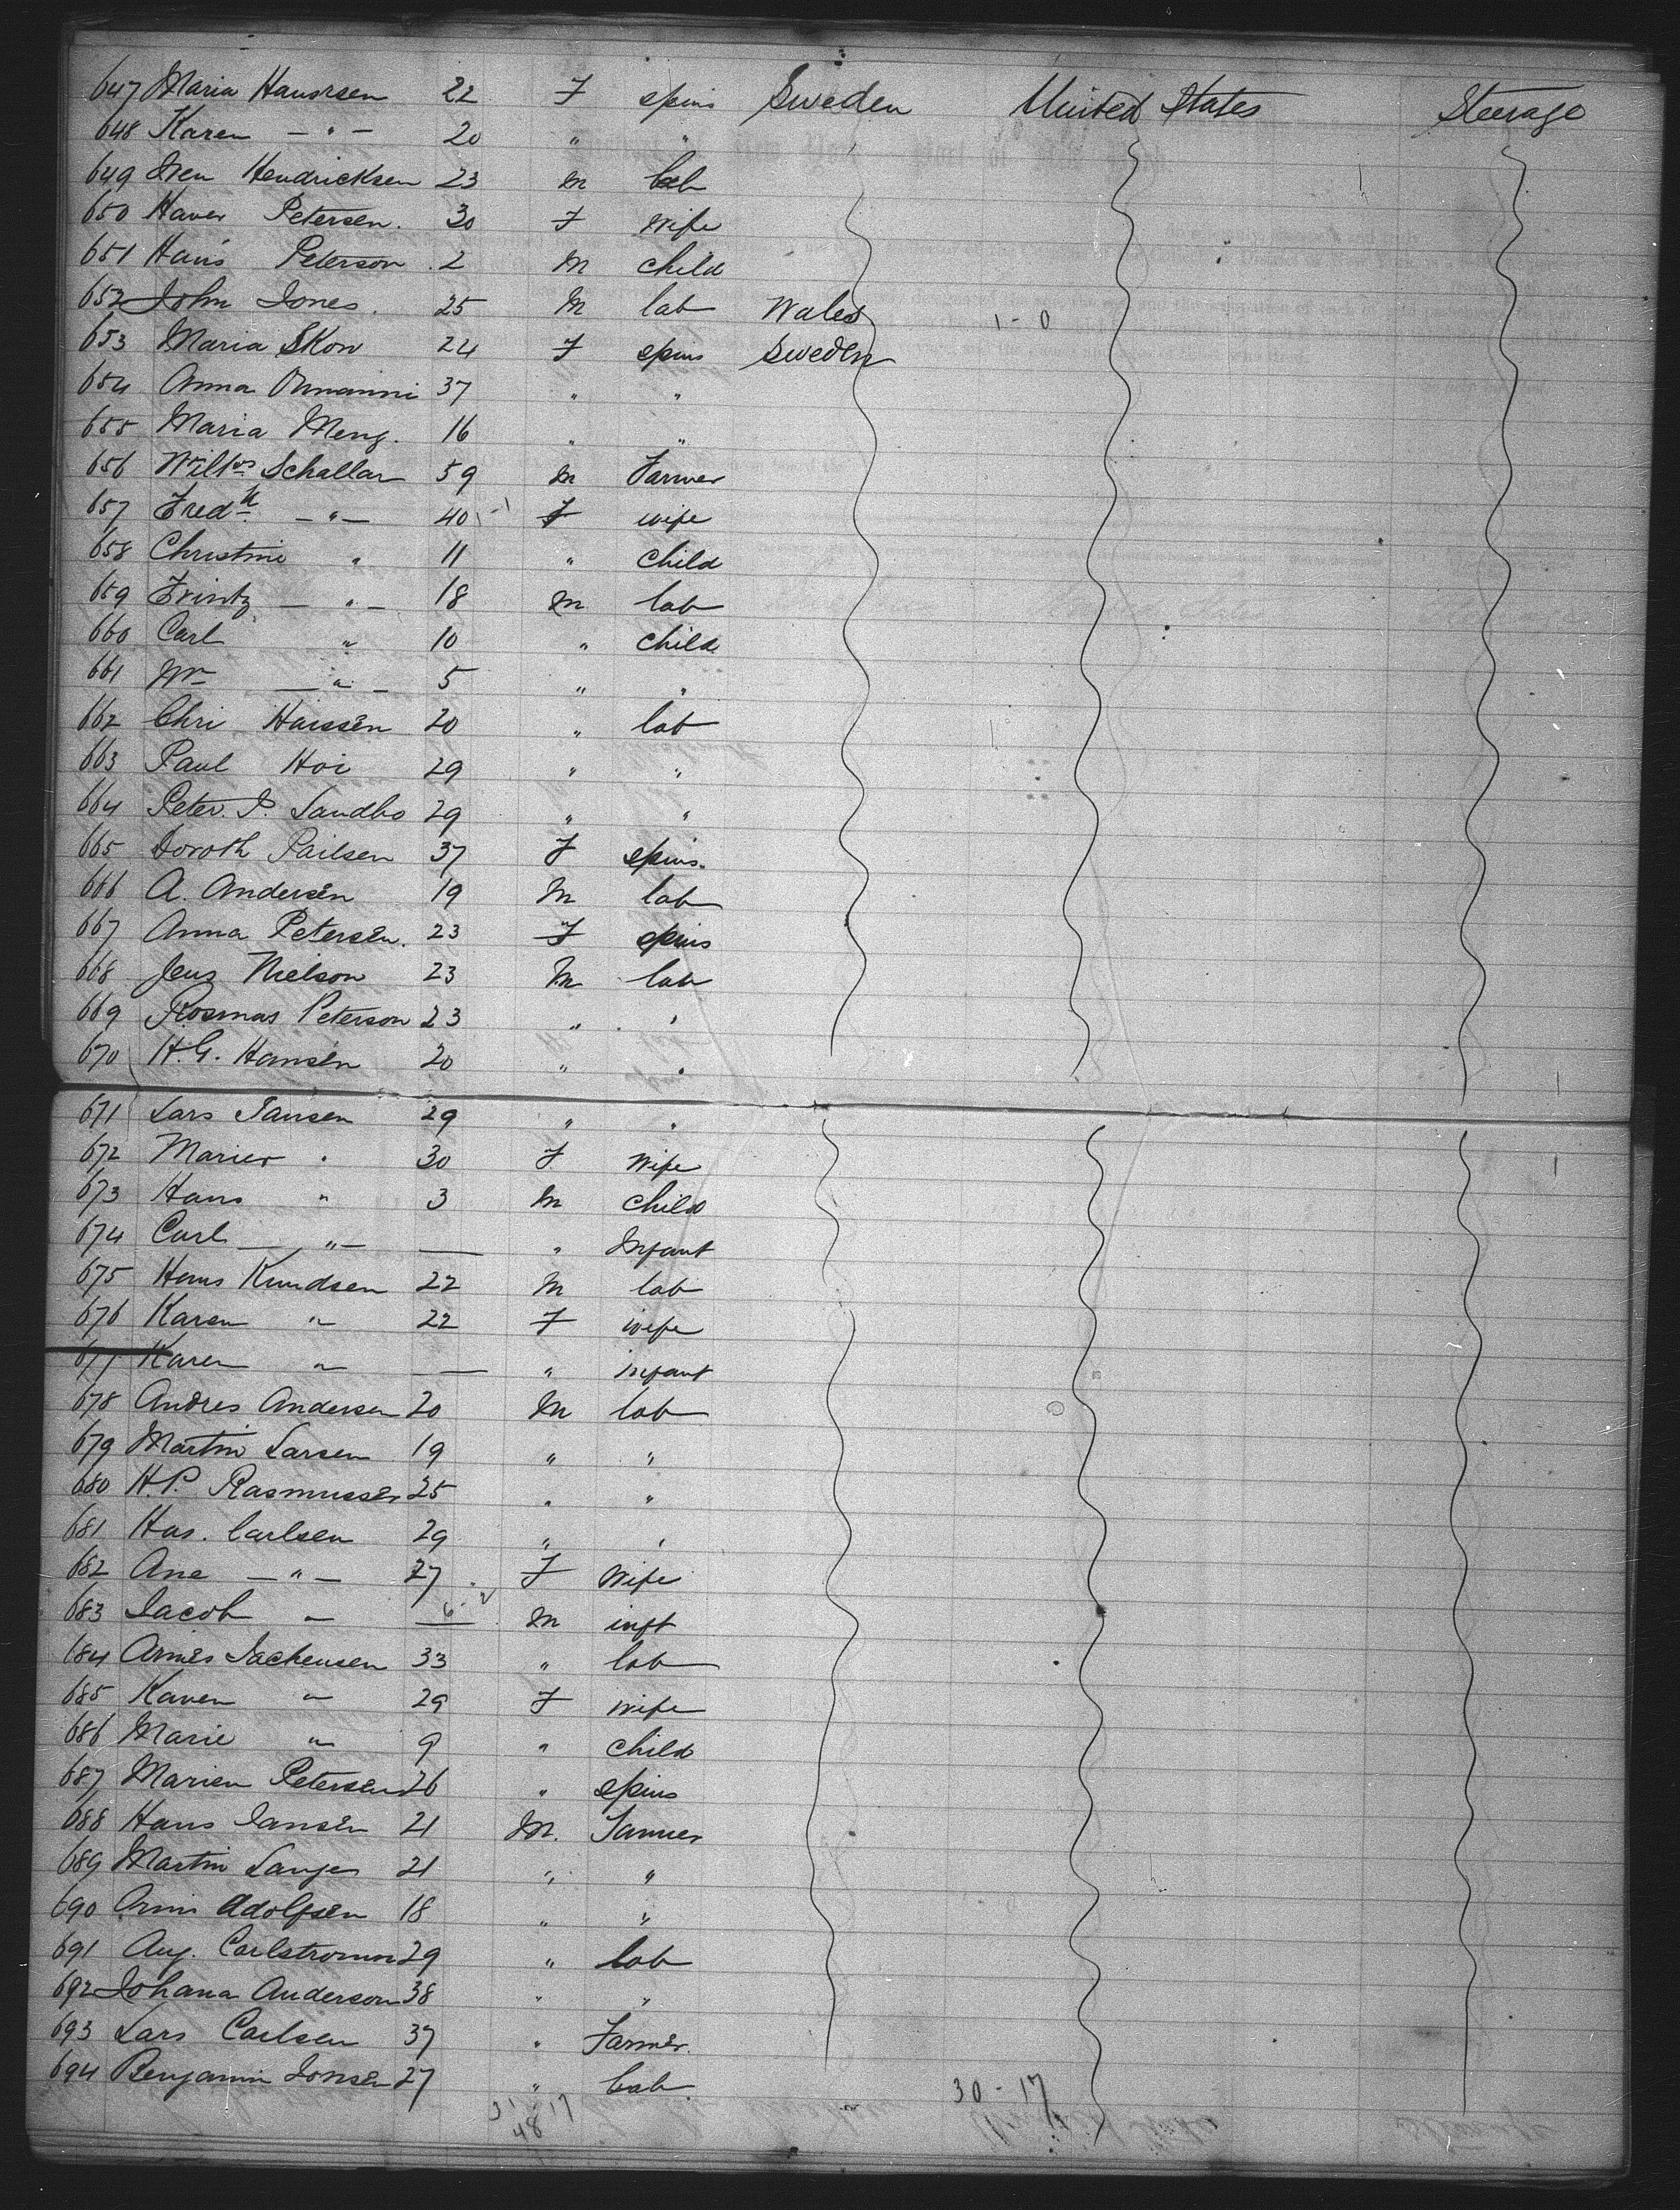 647 Maria Hansrsen 22 F spins Sweden United States Steerage
648 Karen — " — 20 " "
649 Iven Hendricksen 23 M lab
650 Haver Petersen. 30 F wife
651 Hans Peterson 2 M child
652 John Jones. 25 M lab Wales 1-0
653 Maria Skow 24 F spins Sweden
654 Anna 37 " "
655 Maria Meng. 16 " "
656 Schallar 59 M Farmer
657 Fredk — " — 40 -1 F wife
658 Christine " 11 " child
659 — " — 18 M lab
660 Carl " 10 " child
661 Wm — " — 5 " "
662 Chri Haissen 20 " lab
663 Paul Hoi 29 " "
664 Peter. P. Sandbo 29 " "
665 Doroth Pailsen 37 F spins.
666 A. Andersen 19 M lab
667 Anna Petersen. 23 F spins
668 Jens Nielson 23 M lab
669 Rosmas Peterson 23 " "
670 H.G. Hansen 20 " "
671 Lars Jansen 29 " "
672 Marier " 30 F wife
673 Hans " 3 M child
674 Carl — " — — " Infant
675 Hans Kundsen 22 M lab
676 Karen " 22 F wife
677 Karen " — " infant
678 Andres Andersen 20 M lab
679 Martin Larsen 19 " "
680 H.P. Rasmussen 25 " "
681 Has. Carlsen 29 " "
682 Ane — " — 27 F Wife
683 Jacob " — M inft
684 33 " lab
685 Karen " 29 F wife
686 Marie " 9 " child
687 Marien Petersen 26 " spins
688 Hans Jansen 21 M. Farmer
689 Martin Langes 21 " "
690 Adolfsen 18 " "
691 Aug. Carlstromm 29 " lab
692 Johana Anderson 38 " "
693 Lars Carlsen 37 " Farmer.
694 Benjamin Jonsen 27 " lab
30-17
48